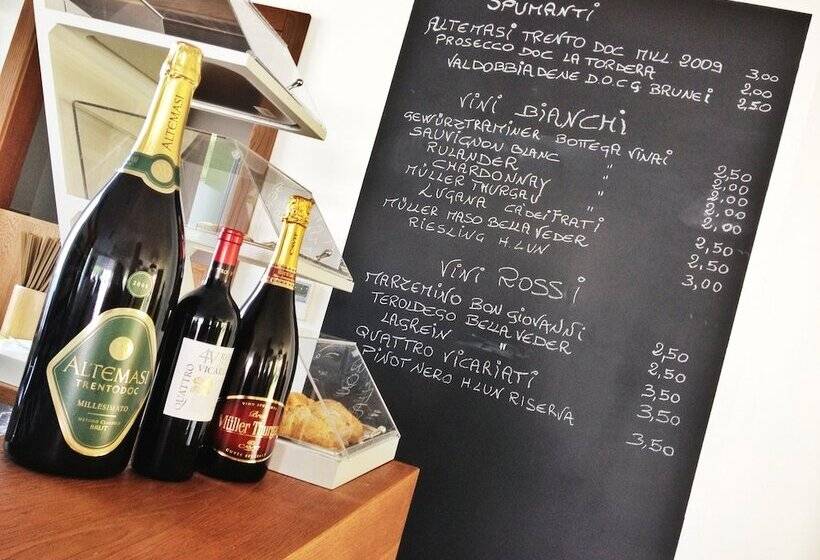 SPUMANTI
ALTEMASI TRENTO DOC MILL 2009 3,00
PROSECCO DOC LA TORDERA 2,00
VALDOBBIADENE D.O.C.G BRUNEI 2,50
VINI BIANCHI
GEWÜRZTRAMINER BOTTEGA VINAI 2,50
SAUVIGNON BLANC " 2,00
RULANDER " 2,00
CHARDONNAY " 2,00
MÜLLER THURGAU " 2,00
LUGANA CA DEI FRATI 2,50
MÜLLER MASO BELLAVEDER 2,50
RIESLING H.LUN 3,00
VINI ROSSI
MARZEMINO BON GIOVANNI 2,50
TEROLDEGO BELLAVEDER 2,50
LAGREIN " 3,50
QUATTRO VICARIATI 3,50
PINOT NERO H.LUN RISERVA 3,50
ALTEMASI
ALTEMASI
TRENTODOC
MILLESIMATO
METODO CLASSICO
BRUT
QUATTRO
VICARI
Müller Thurgau